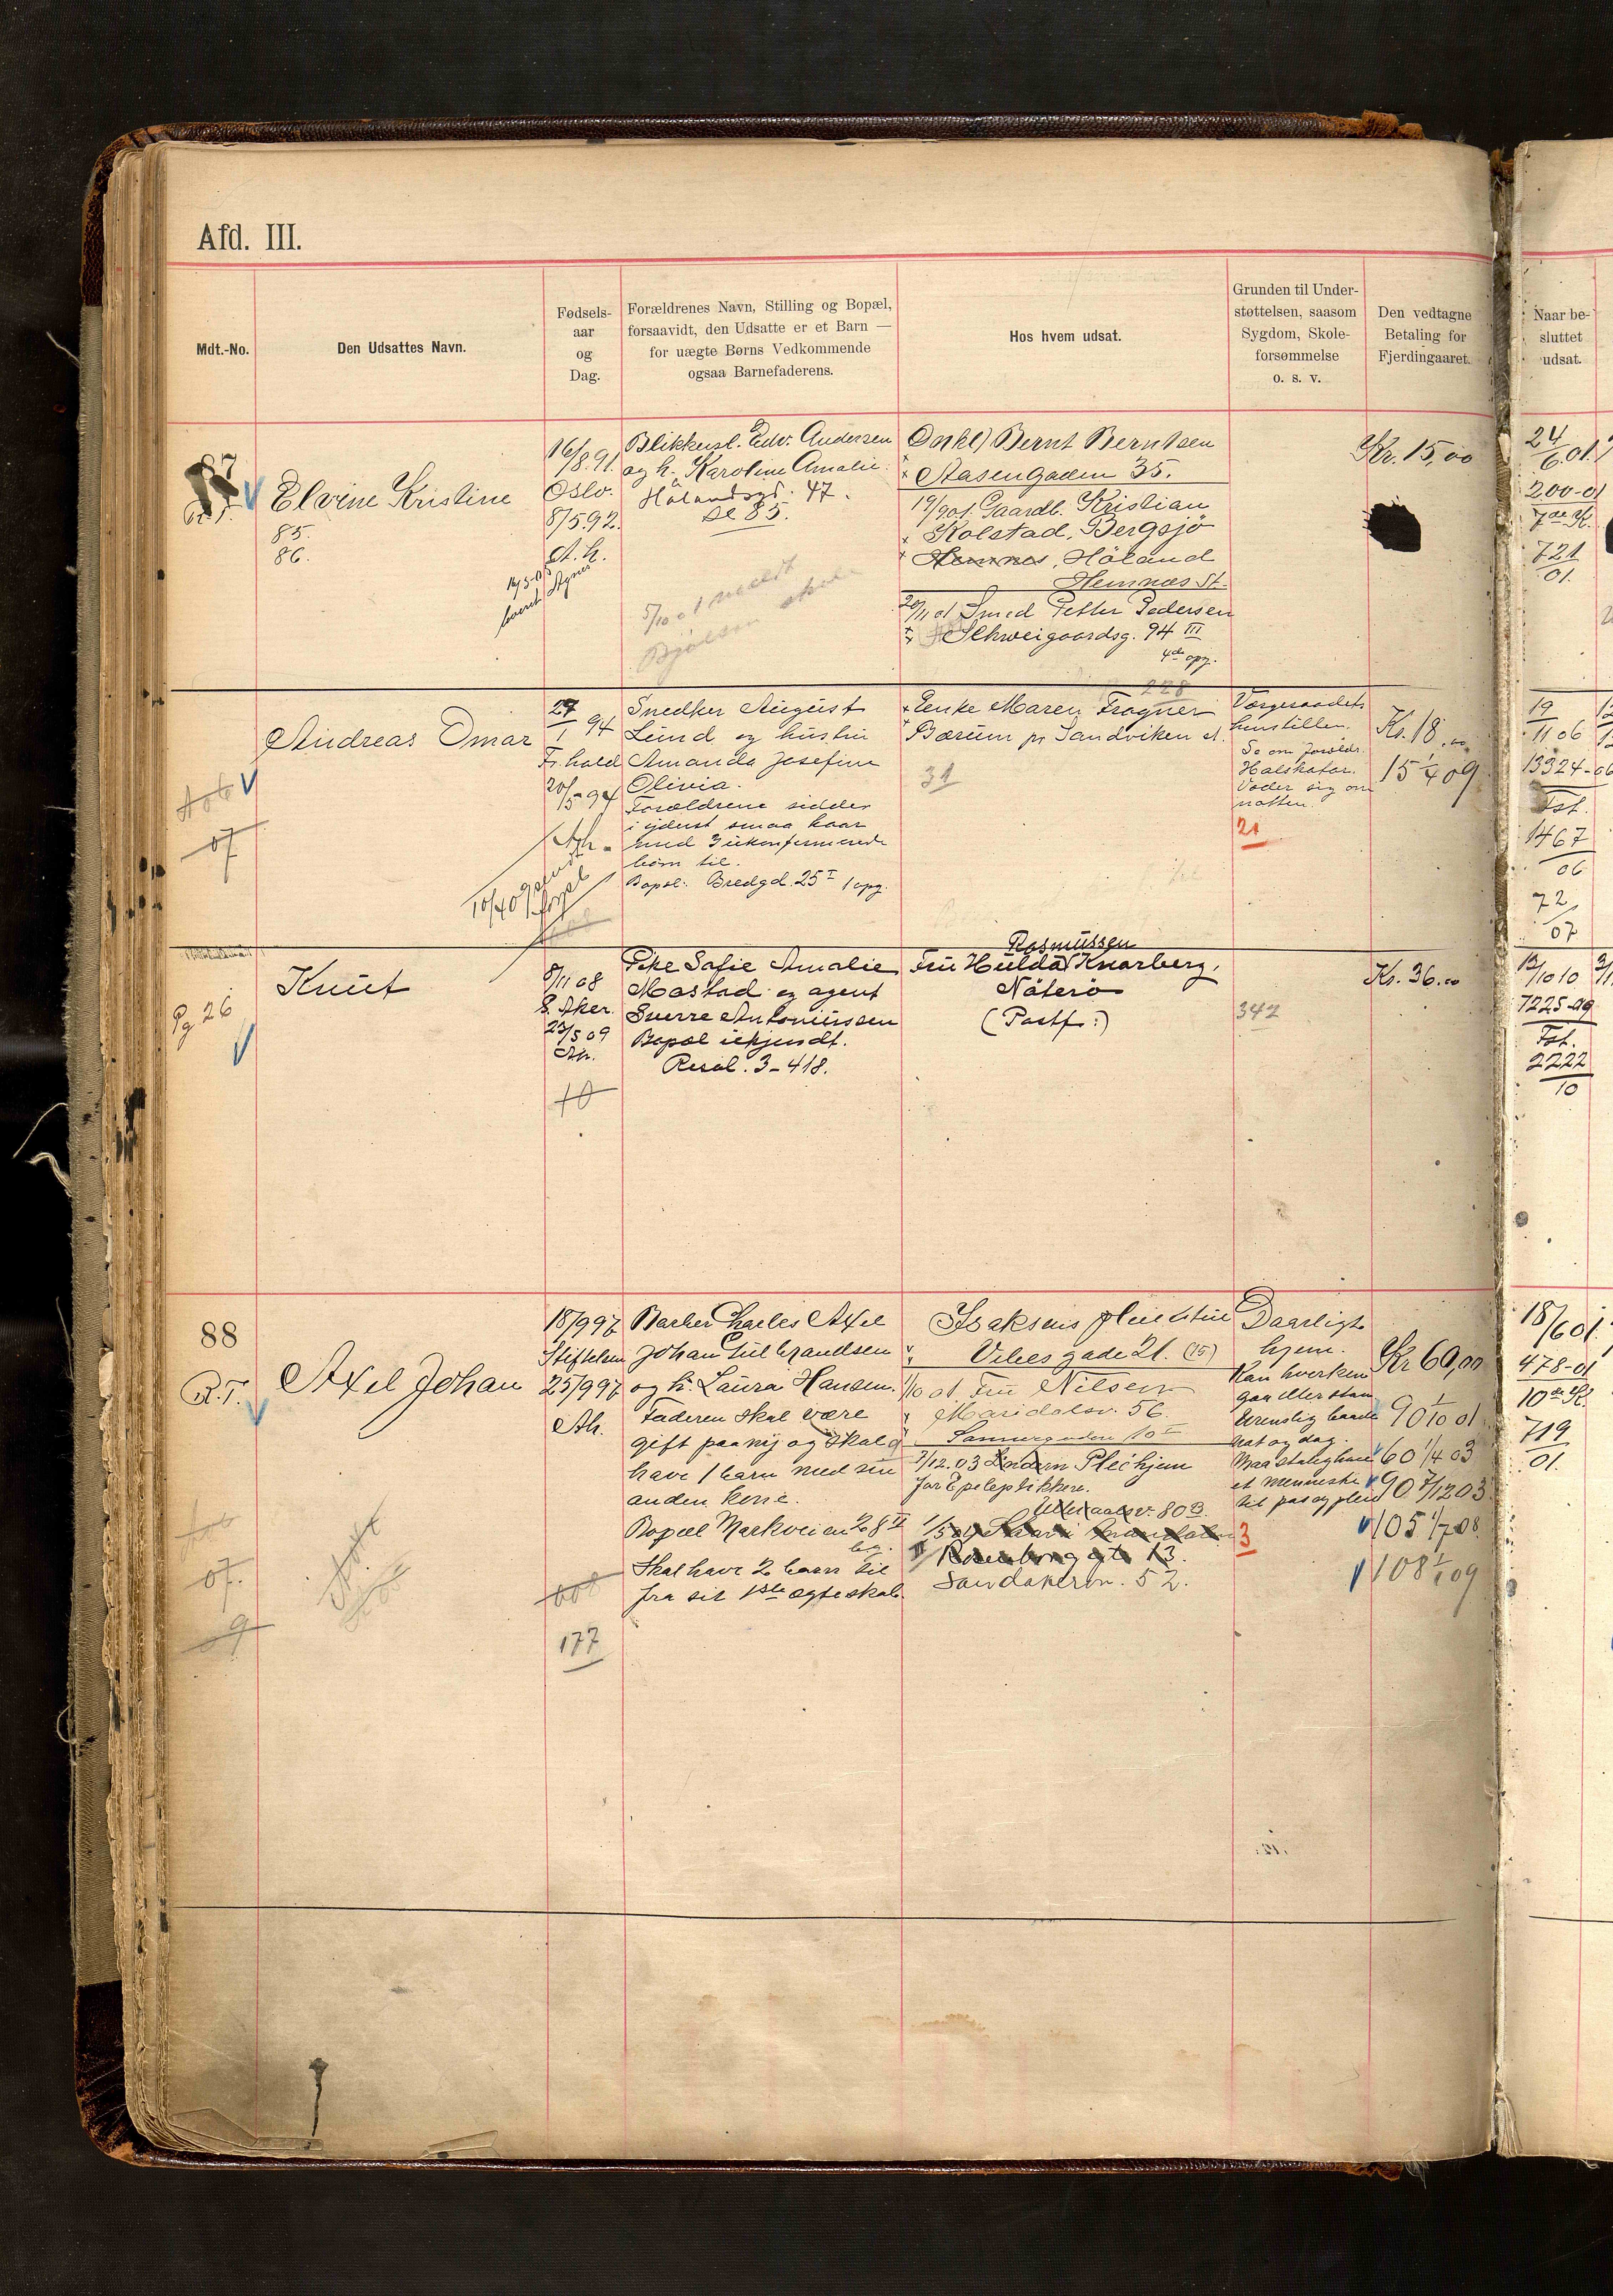 Afd. III.
Mdt.-No.
Den Udsattes Navn.
Fødsels-
aar
og
Dag.
Forældrenes Navn, Stilling og Bopæl,
forsaavidt, den Udsatte er et Barn —
for uægte Børns Vedkommende
ogsaa Barnefaderens.
Hos hvem udsat.
Grunden til Under-
støttelsen, saasom
Sygdom, Skole-
forsømmelse
o. s. v.
Den vedtagne
Betaling for
Fjerdingaaret.
Naar be-
sluttet
udsat.
87
Elvine Kristine
85.
86.
16/8.91.
Oslo.
8/5.92.
A. h.
Blikkensl. Edv. Andersen
og h. Karoline Amalie.
Hölandsgd. 47.
se 85.
5/10 01 meldt
Bjølsen skole
Onkel Bernt Berntsen
Aasengaden 35.
19/901. Gaardb. Kristian
Kolstad, Bergsjö
Hemnes, Höland
Hemnæs St.
20/11 01 Smed Petter Pedersen
Schweigaardsg. 94 III
4de opg.
Kr. 15,00
24/6.01.
200-01
7de K.
721
01.
Andreas Omar
07
27/1 94
Fr. hald
20/5 94
Snedker August
Lund og hustru
Amanda Josefine
Olivia.
Forældrene sidder
i yderst smaa kaar
med 3 ukonfirmerede
børn til.
Bopæl: Bredgd. 25 I 1 opg.
228
Enke Maren Frogner
Bærum pr Sandviken st.
31
Værgeraadets
henstillen.
So om foreldr.
Halskatar.
Væder sig om
natten.
21
Kr. 18.00
15 1/4 09
19
11 06
13324-06
Fst.
1467
06
72
07
Knut
Pg 26
8/11 08
G. Aker.
23/5 09
Ah.
10
Pike Sofie Amalie
Mostad og agent
Sverre Antoniussen
Bopæl ukjendt.
Resol. 3-418.
Rasmussen
Fru Hulda Knarberg,
Nøterø
(Postf:)
342
Kr. 36.00
13/10 10
7225-09
Fst.
2222
10
88
R.T.
Axel Johan
07.
09
18/997
Stiftelsen
25/997
Ah.
177
Barber Charles Axel
Johan Gulbrandsen
og h. Laura Hansen.
Faderen skal være
gift paany og skal
have 1 barn med sin
anden kone.
Bopæl Markveien 28 II
Skal have 2 barn til
fra sit 1ste ægteskab.
Isaksens pleiestue
Vibesgade 21. (15)
1/10 01. Fru Nilsen
Maridalsv. 56.
Sannergaden 10 I
7/12.03 Lindern Pleihjem
for Epileptikkere.
Ullevaalsv. 80 B.
Rosenborg gt. 13.
Sandakervn. 52.
Daarligt
hjem.
Kan hverken
gaa eller staa
Urenslig baade
nat og dag.
et menneske
til pas og pleie
3
Kr 60,00
90 1/10 01
60 1/4 03
90 7/12 03
105 1/7 08.
108 1/1 09
18/6 01.
478-01
10de K.
719
01.